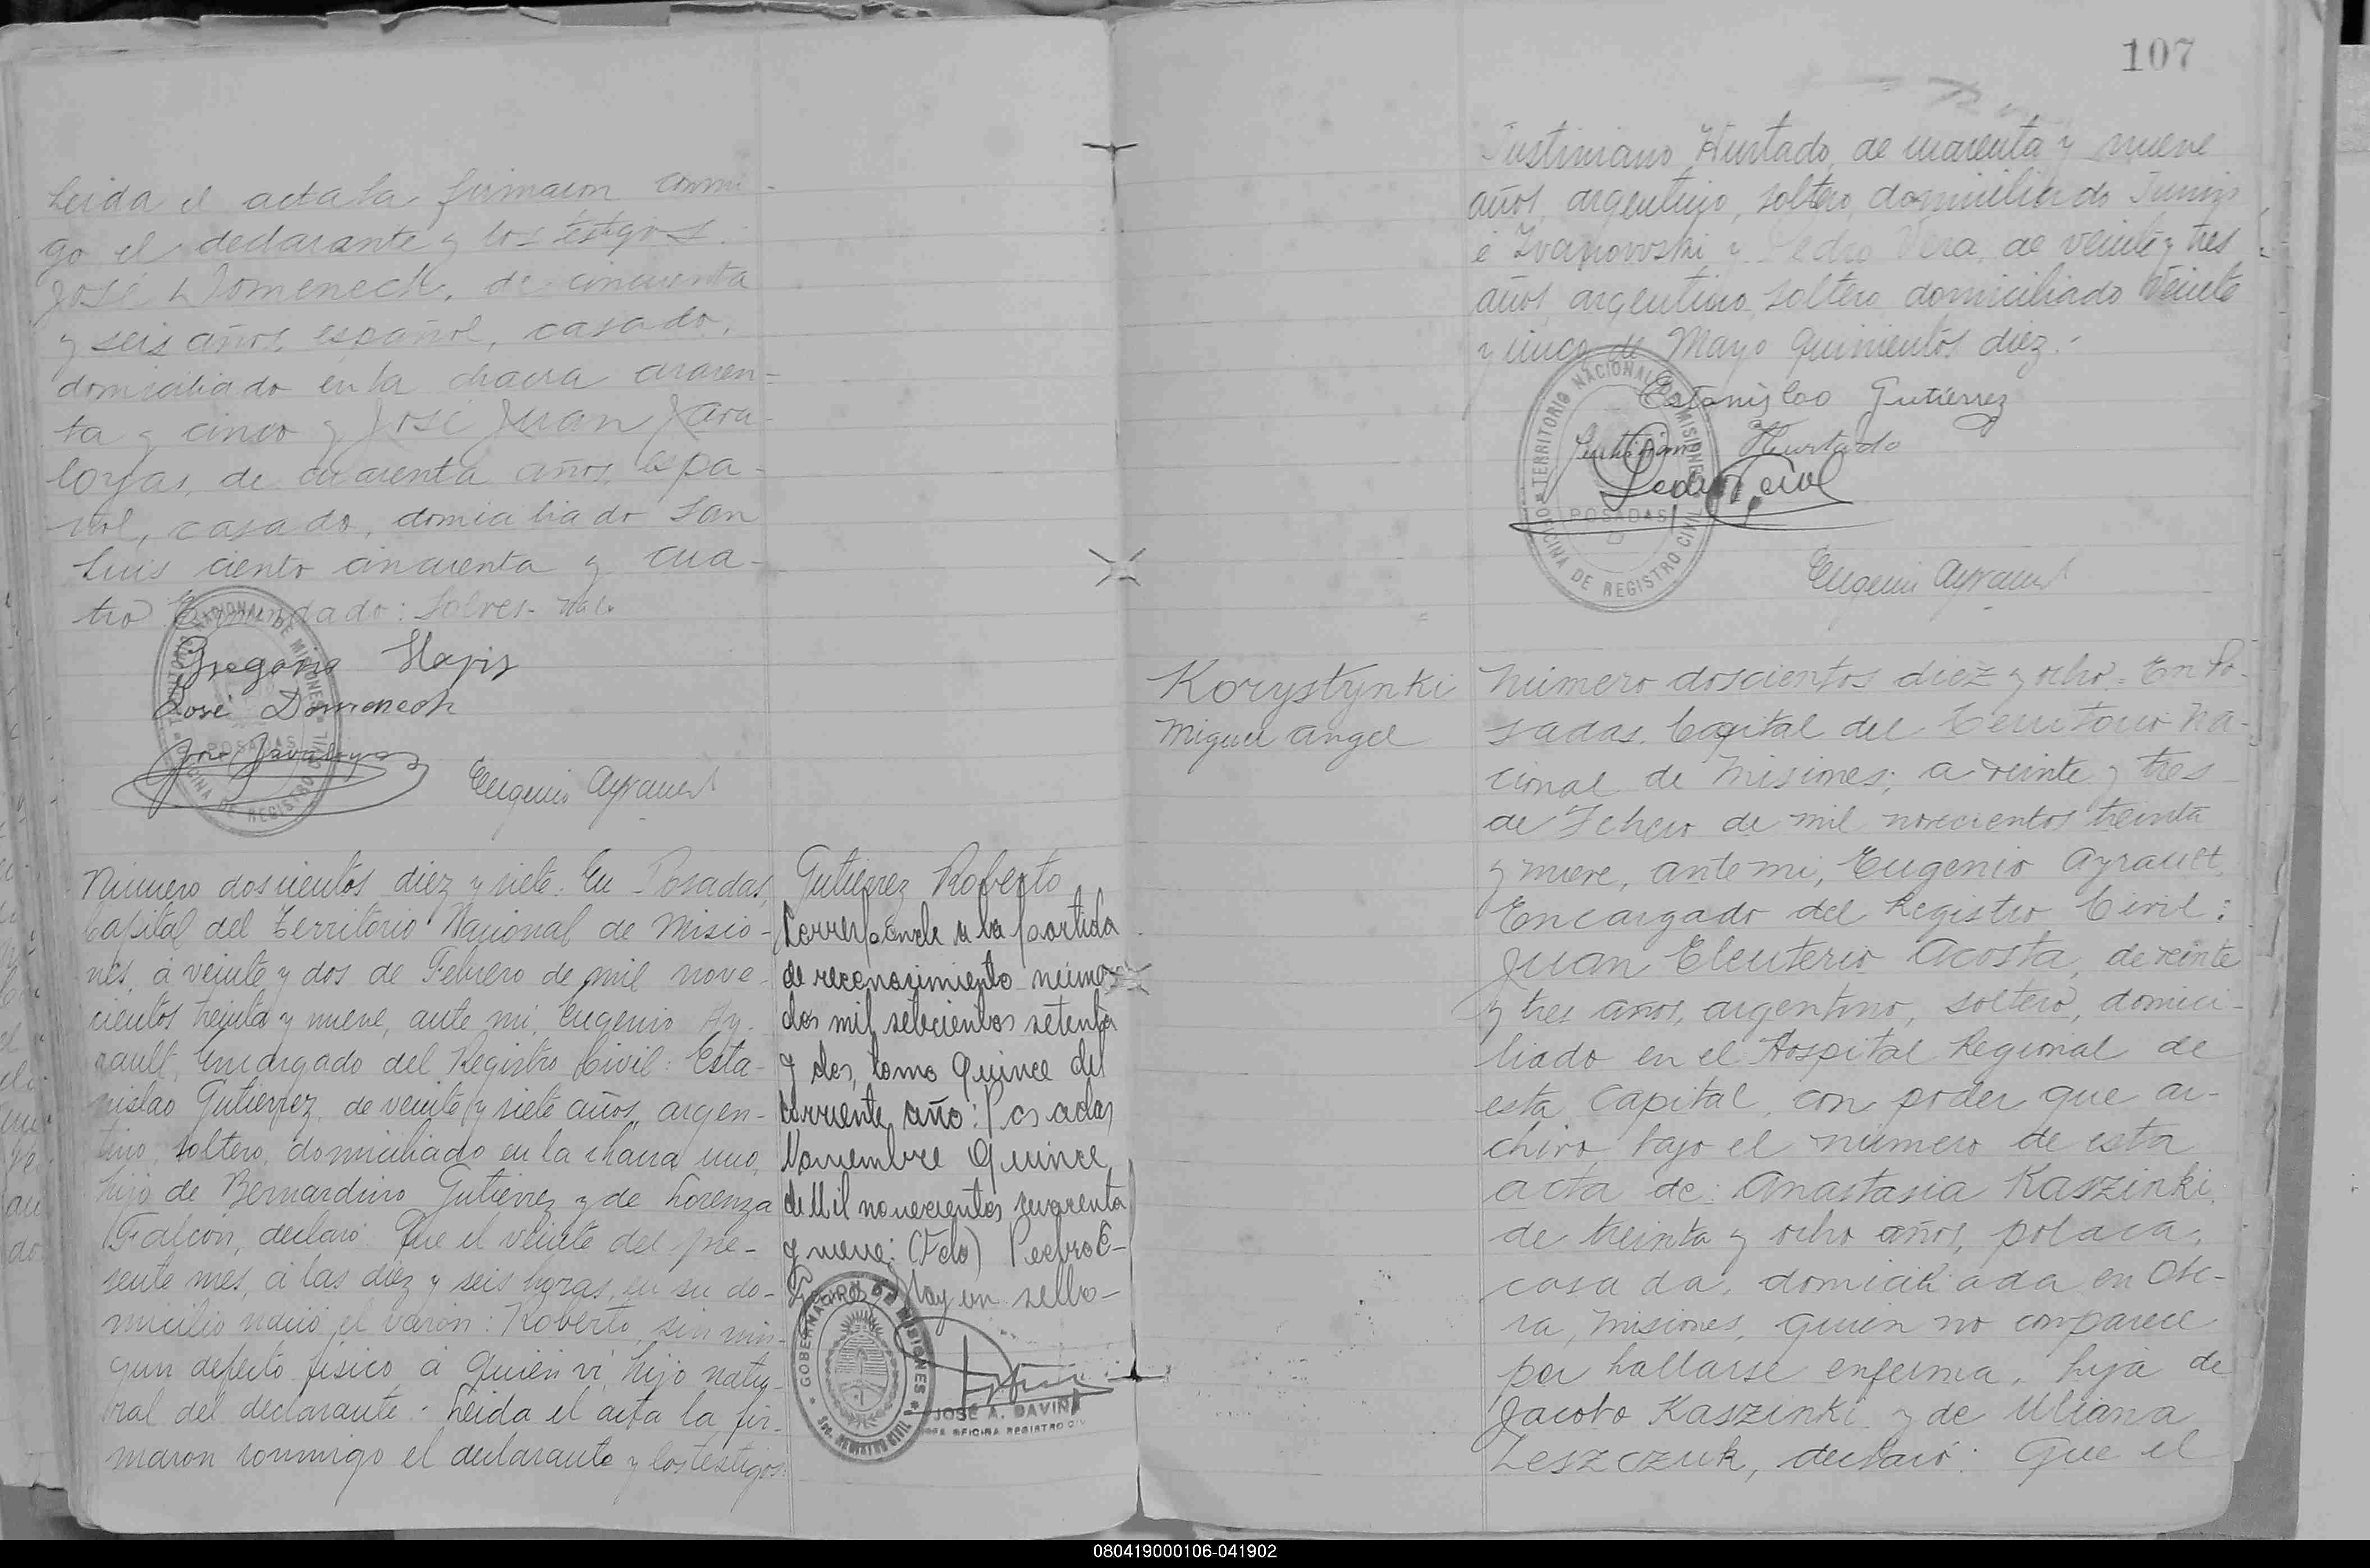 Leida el acta la firmaron conmi-
go el declarante y los testigos
José Domenech, de cincuenta
y seis años, español, casado,
domiciliado en la chacra cuaren-
ta y cinco y José Juan Java-
loyas, de cuarenta años, espa-
ñol, casado, domiciliado San
Luis ciento cincuenta y cua-
tro Enmendado: Solves- Vale
Gregorio
José Domenech
José Javaloyas
Eugenio Ayrault
TERRITORIO NACIONAL DE MISIONES
POSADAS
OFICINA DE REGISTRO CIVIL
Número doscientos diez y siete. En Posadas,
Capital del Territorio Nacional de Misio-
nes, á veinte y dos de Febrero de mil nove-
cientos treinta y nueve, ante mi, Eugenio Ay-
rault, Encargado del Registro Civil: Esta-
nislao Gutierrez, de veinte y siete años, argen-
tino, soltero, domiciliado en la chacra uno,
hijo de Bernardino Gutierrez y de Lorenza
Falcón, declaró: Que el veinte del pre-
sente mes, á las diez y seis horas, en su do-
micilio nació el varón: Roberto, sin nin-
gun defecto físico á quien vi, hijo natu-
ral del declarante.- Leida el acta la fir-
maron conmigo el declarante y los testigos:
Gutierrez Roberto
Corresponde a la partida
de reconocimiento número
dos mil setecientos setenta
y dos, tomo Quince del
corriente año: Posadas
Noviembre Quince
de Mil novecientos cuarenta
y nueve: (Fdo) Pedro E-
Hay un sello-
GOBERNACION DE MISIONES
Sec. REGISTRO CIVIL
JOSÉ A. DAVIÑA
OFICINA REGISTRO CIVIL
107
Justiniano Hurtado, de cuarenta y nueve
años, argentino, soltero, domiciliado Junin
é Ivanovvski y Pedro Vera, de veinte y tres
años, argentino, soltero, domiciliado Veinte
y cinco de Mayo quinientos diez.-
Estanislao Gutierrez
Justiniano Hurtado
Pedro Vera
Eugenio Ayrault
TERRITORIO NACIONAL DE MISIONES
POSADAS
OFICINA DE REGISTRO CIVIL
Korystynki
Miguel Angel
Número doscientos diez y ocho= En Po-
sadas, Capital del Territorio Na-
cional de Misiones, a veinte y tres
de Febrero de mil novecientos treinta
y nueve, ante mi, Eugenio Ayrault,
Encargado del Registro Civil:
Juan Eleuterio Acosta, de veinte
y tres años, argentino, soltero, domici-
liado en el Hospital Regional de
esta Capital, con poder que ar-
chivo bajo el número de esta
acta de: Anastasia Kaszinki,
de treinta y ocho años, polaca,
casada, domiciliada en Obe-
ra, Misiones, quien no comparece
por hallarse enferma, hija de
Jacobo Kaszinki y de Uliana
Leszczuk, declaró: Que el
080419000106-041902